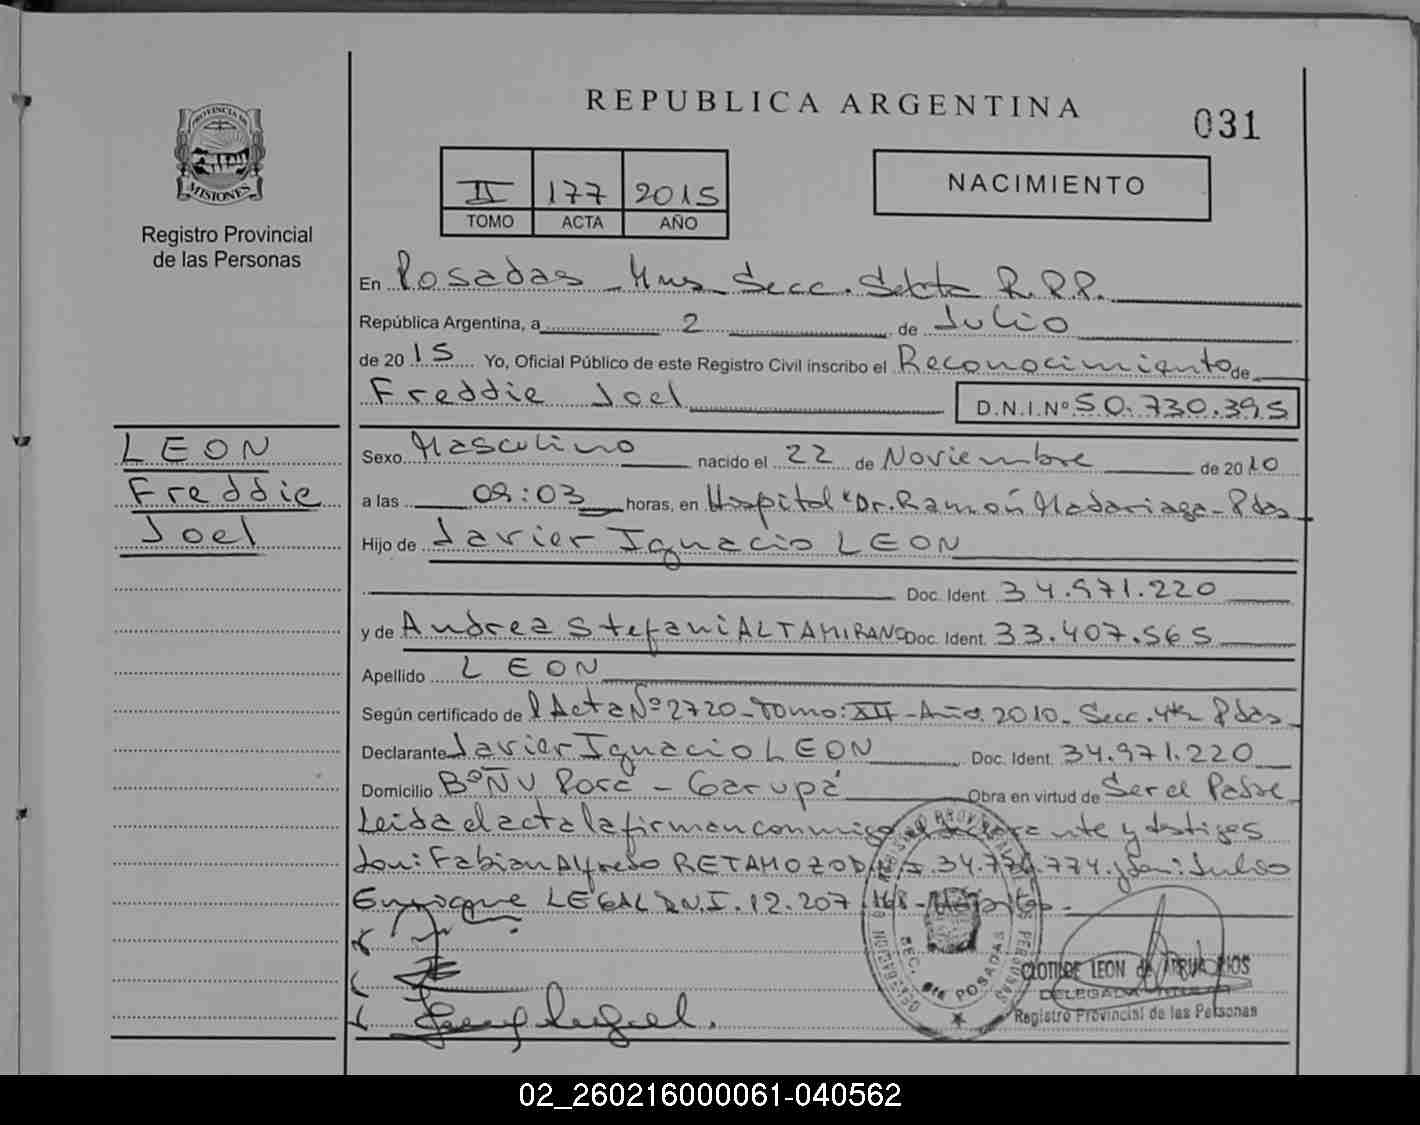 REPUBLICA ARGENTINA
031
PROVINCIA DE MISIONES
Registro Provincial
de las Personas
II 177 2015
TOMO ACTA AÑO
NACIMIENTO
En Posadas Mns Secc. Sexta R.P.P.
República Argentina, a 2 de Julio
de 2015 Yo, Oficial Público de este Registro Civil inscribo el Reconocimiento de
Freddie Joel D.N.I.Nº 50.730.395
LEON
Freddie
Joel
Sexo Masculino nacido el 22 de Noviembre de 2010
a las 09:03 horas, en Hospital "Dr. Ramón Madariaga - Pdas
Hijo de Javier Ignacio LEON
Doc. Ident. 34.971.220
y de Andrea Stefani ALTAMIRANO Doc. Ident. 33.407.565
Apellido LEON
Según certificado de l Acta Nº 2720 - Tomo: XII - Año 2010 - Secc. 4ta Pdas
Declarante Javier Ignacio LEON Doc. Ident. 34.971.220
Domicilio Bº Ñu Porá - Garupá Obra en virtud de Ser el Padre
Leida el acta la firman conmigo el declarante y testigos
Son: Fabian Alfredo RETAMOZO D.N.I. 34.774. y Son: Julio
Enrique LEGAL D.N.I. 12.207.168 -
REGISTRO PROVINCIAL DE LAS PERSONAS
DELEGACION
SEC. 6ta POSADAS
CLOTILDE LEON de
DELEGADA TITULAR
Registro Provincial de las Personas
02_260216000061-040562